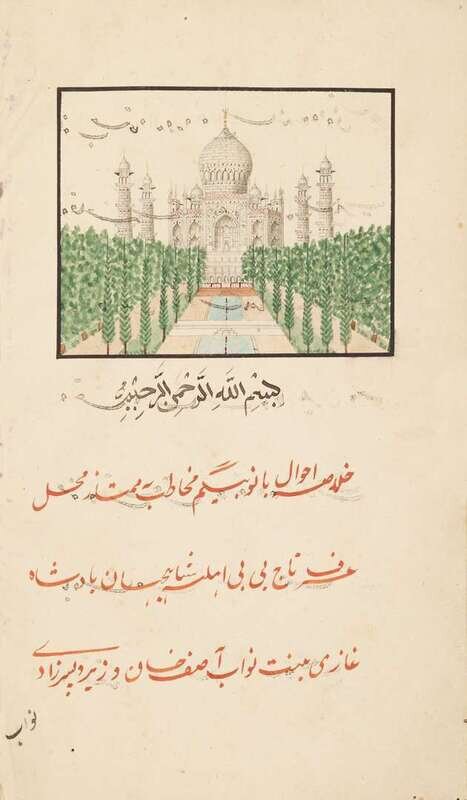 بسم الله الرحمن الرحیم
خلاصه احوال بانو بیگم مخاطب به ممتاز محل
عرف تاج بی بی اهلیه شاهجهان بادشاه
غازی بنت نواب آصف خان وزیر و پسرزادی
نواب